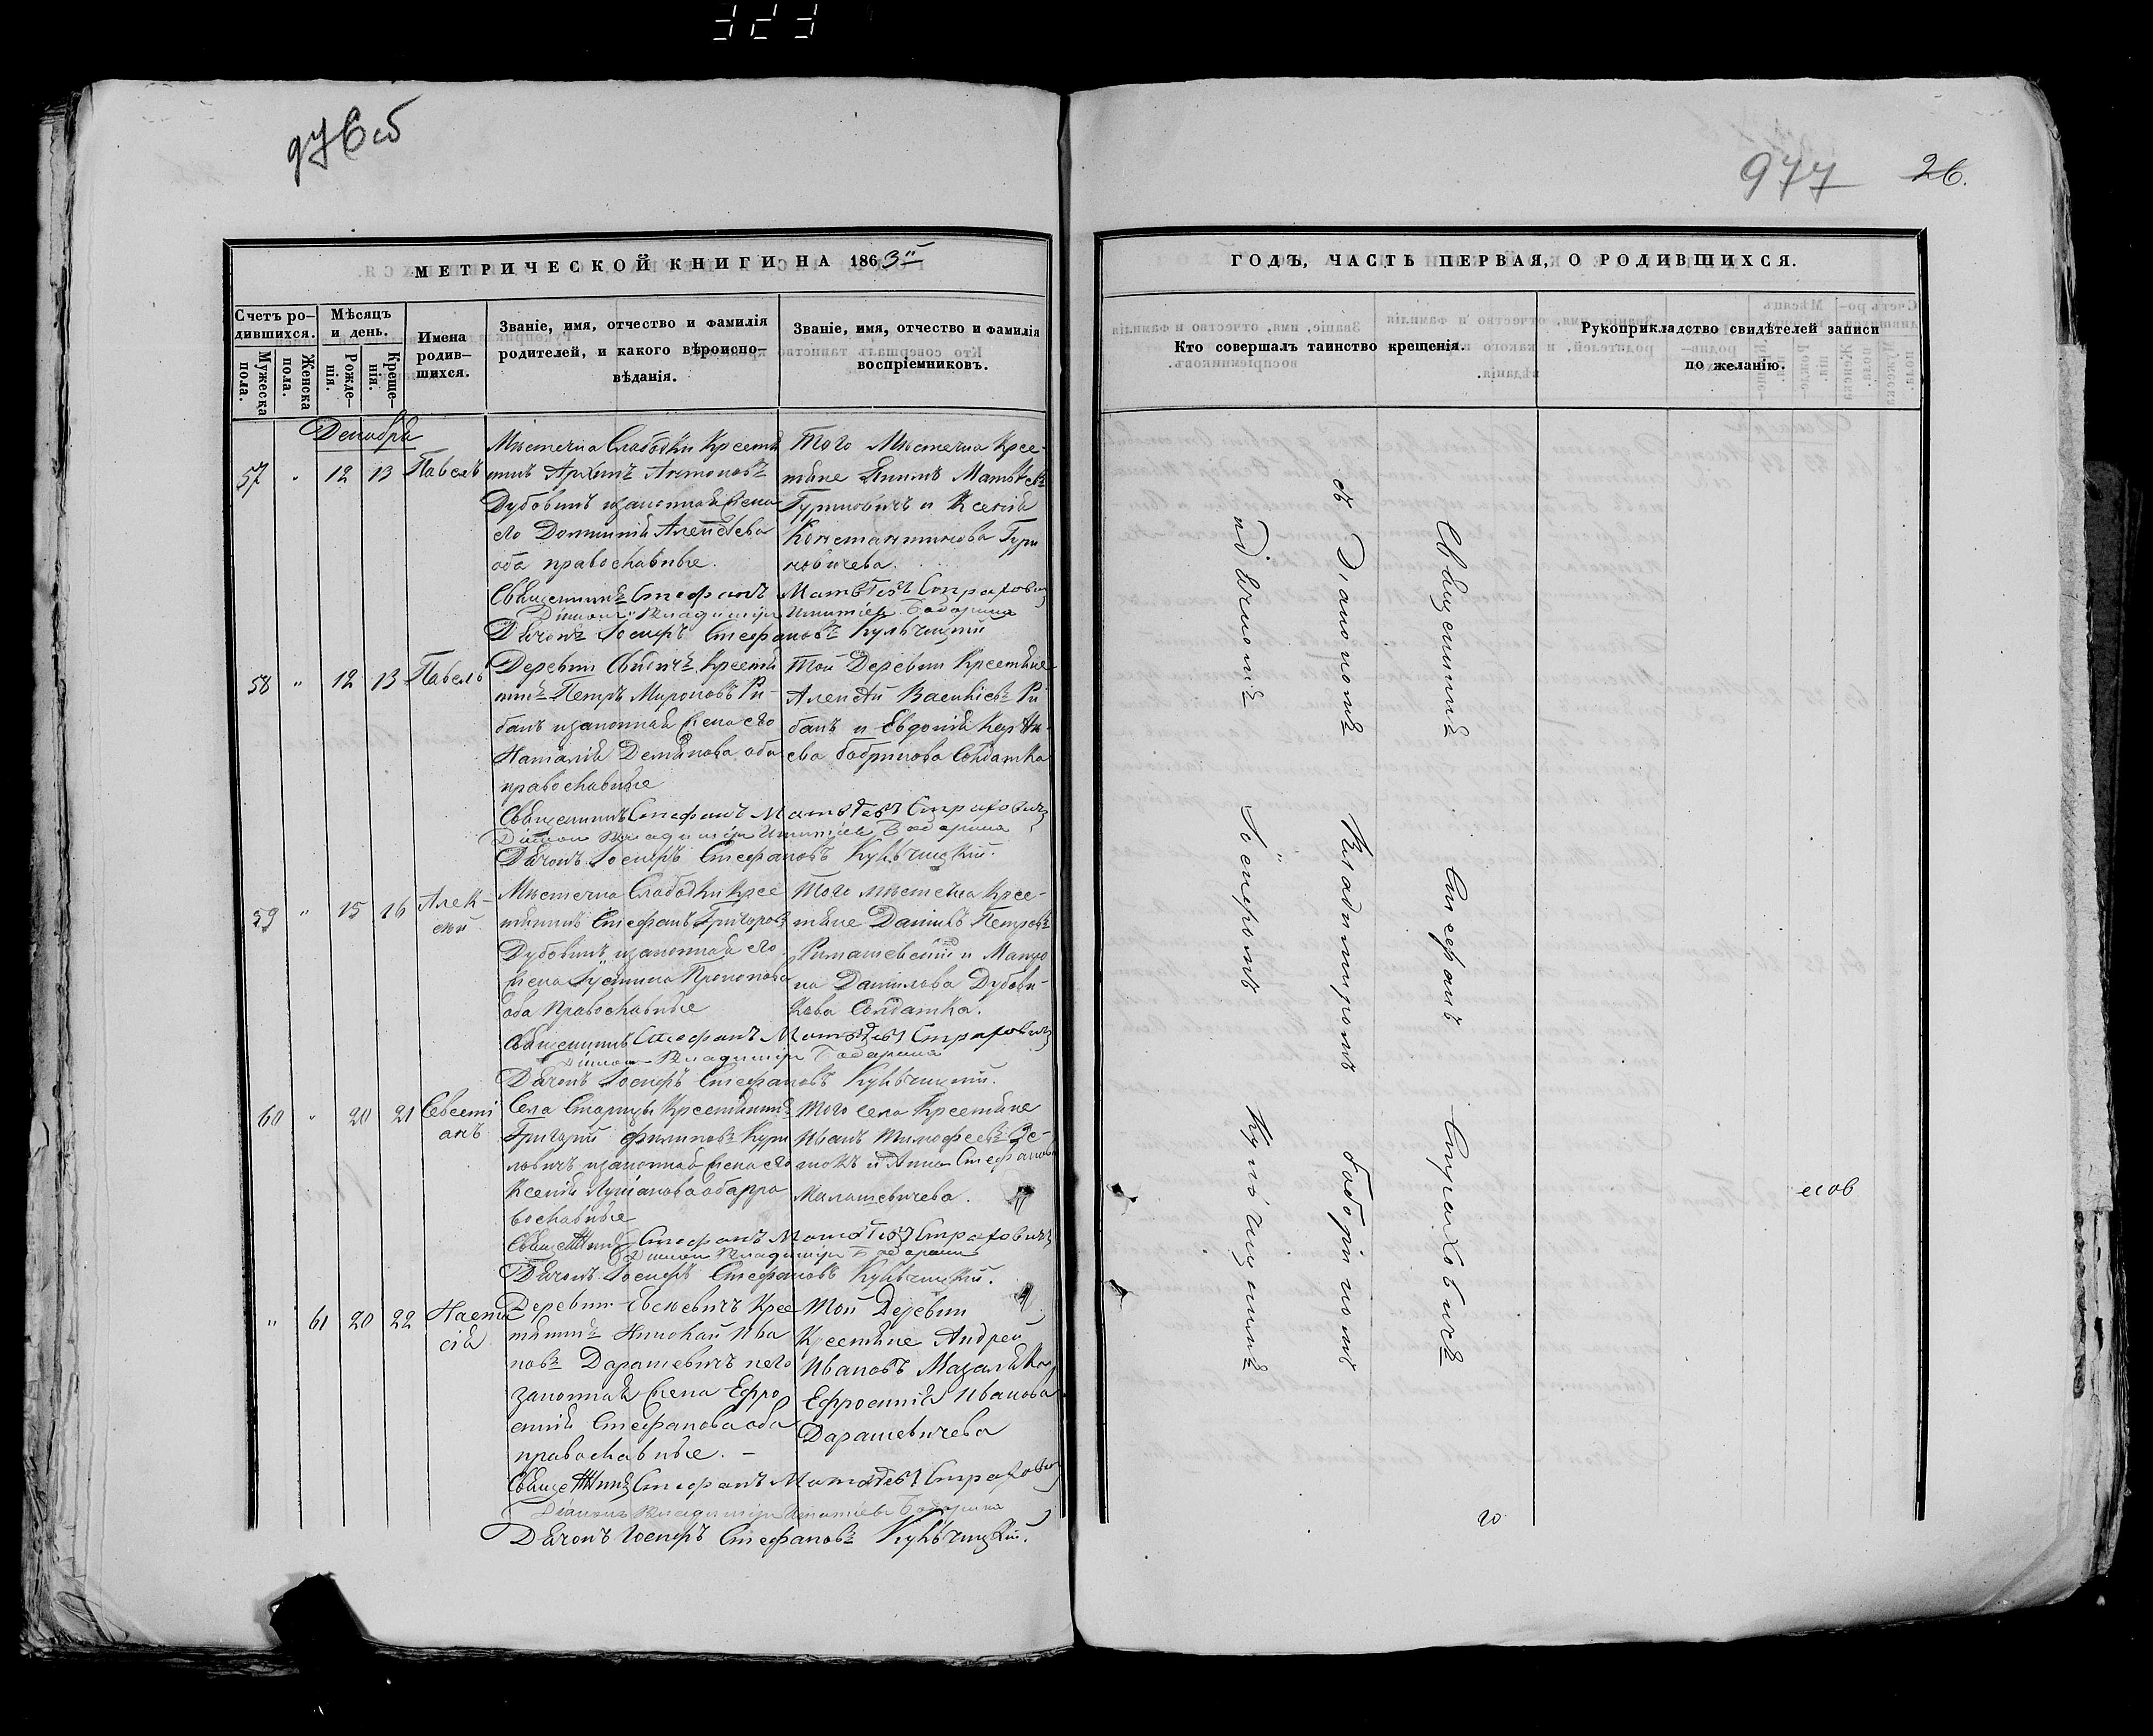 323
976 об
977 26.
МЕТРИЧЕСКОЙ КНИГИ НА 1863й
Счетъ ро-
дившихся.
Мужеска
пола.
Женска
пола.
Мѣсяцъ
и день.
Рожде-
нія.
Креще-
нія.
Имена
родив-
шихся.
Званіе, имя, отчество и фамилія
родителей, и какого вѣроиспо-
вѣданія.
Званіе, имя, отчество и фамилія
воспріемниковъ.
Декабрь
57 " 12 13 Павелъ
Мѣстечка Слабодки Крестья
нинъ Архипъ Антоновъ
Дубовикъ изаконная жена
его Домникія Алексѣева
оба православные.
Того Мѣстечка Крес-
тьяне Якимъ Матѣевъ
Гуриновичъ и Ксенія
Константинова Гури
новичева.
Священникъ Стефанъ Матѣевъ Страховичъ
Діаконъ Владиміръ Игнатіев Бабарика
Дьячокъ Іосифъ Стефановъ Кульчицкій
58 " 12 13 Павелъ
Деревни Крестья
нинъ Петръ Мироновъ Ри-
банъ изаконная жена его
Наталія Демьянова оба
православные
Той Деревни Крестьяне
Алексѣй Василіевъ Ри
банъ и Евдокія
Солдатка
Священникъ Стефанъ Матѣевъ Страховичъ
Діакон Владиміръ Игнатіев Бабарика
Дьячокъ Іосифъ Стефановъ Кульчицкій.
59 " 15 16 Алек-
сѣй
Мѣстечка Слабодки Крес
тьянинъ Стефанъ Григоровъ
Дубовикъ изаконная его
жена Іустина Прокопова
оба Православные
Того мѣстечка Крес-
тьяне Даніилъ Петровъ
Ромашевскій и Матро
на Данилова Дубови-
кова Солдатка.
Священникъ Стефанъ Матѣевъ Страховичъ
Діакон Владиміръ Бабарика
Дьячокъ Іосифъ Стефановъ Кульчицкій.
60 " 20 21 Севасті
анъ
Села Старицы Крестьянинъ
Григорій Филиповъ Кури
ловичъ изаконная жена его
Ксенія Лукіанова оба пра
вославные
Того села Крестьяне
Иванъ Тимофеевъ
и Анна Стефанова
Малашевичева.
Священникъ Стефанъ Матѣевъ Страховичъ
Діакон Владиміръ Бабарика
Дьячокъ Іосифъ Стефановъ Кульчицкій.
" 61 20 22 Настасія
Деревни Крес
тьянинъ Николай Ива
новъ Дарашевичъ и его
законная жена Ефро
синія Стефанова оба
православные. -
Той Деревни
Крестьяне Андрей
Ивановъ
Ефросинія Иванова
Дарашевичева
Священникъ Стефанъ Матѣевъ Страховичъ
Діаконъ Владиміръ Игнатіевъ Бабарика
Дьячокъ Іосифъ Стефановъ Кульчицкій.
ГОДЪ, ЧАСТЬ ПЕРВАЯ, О РОДИВШИХСЯ.
Кто совершалъ таинство крещенія.
Рукоприкладство свидѣтелей записи
по желанію.
Священникъ Стефанъ Страховичъ
съ Діакономъ Владимиромъ Бабарикомъ
и Дьячкомъ Іосифомъ Кульчицкимъ